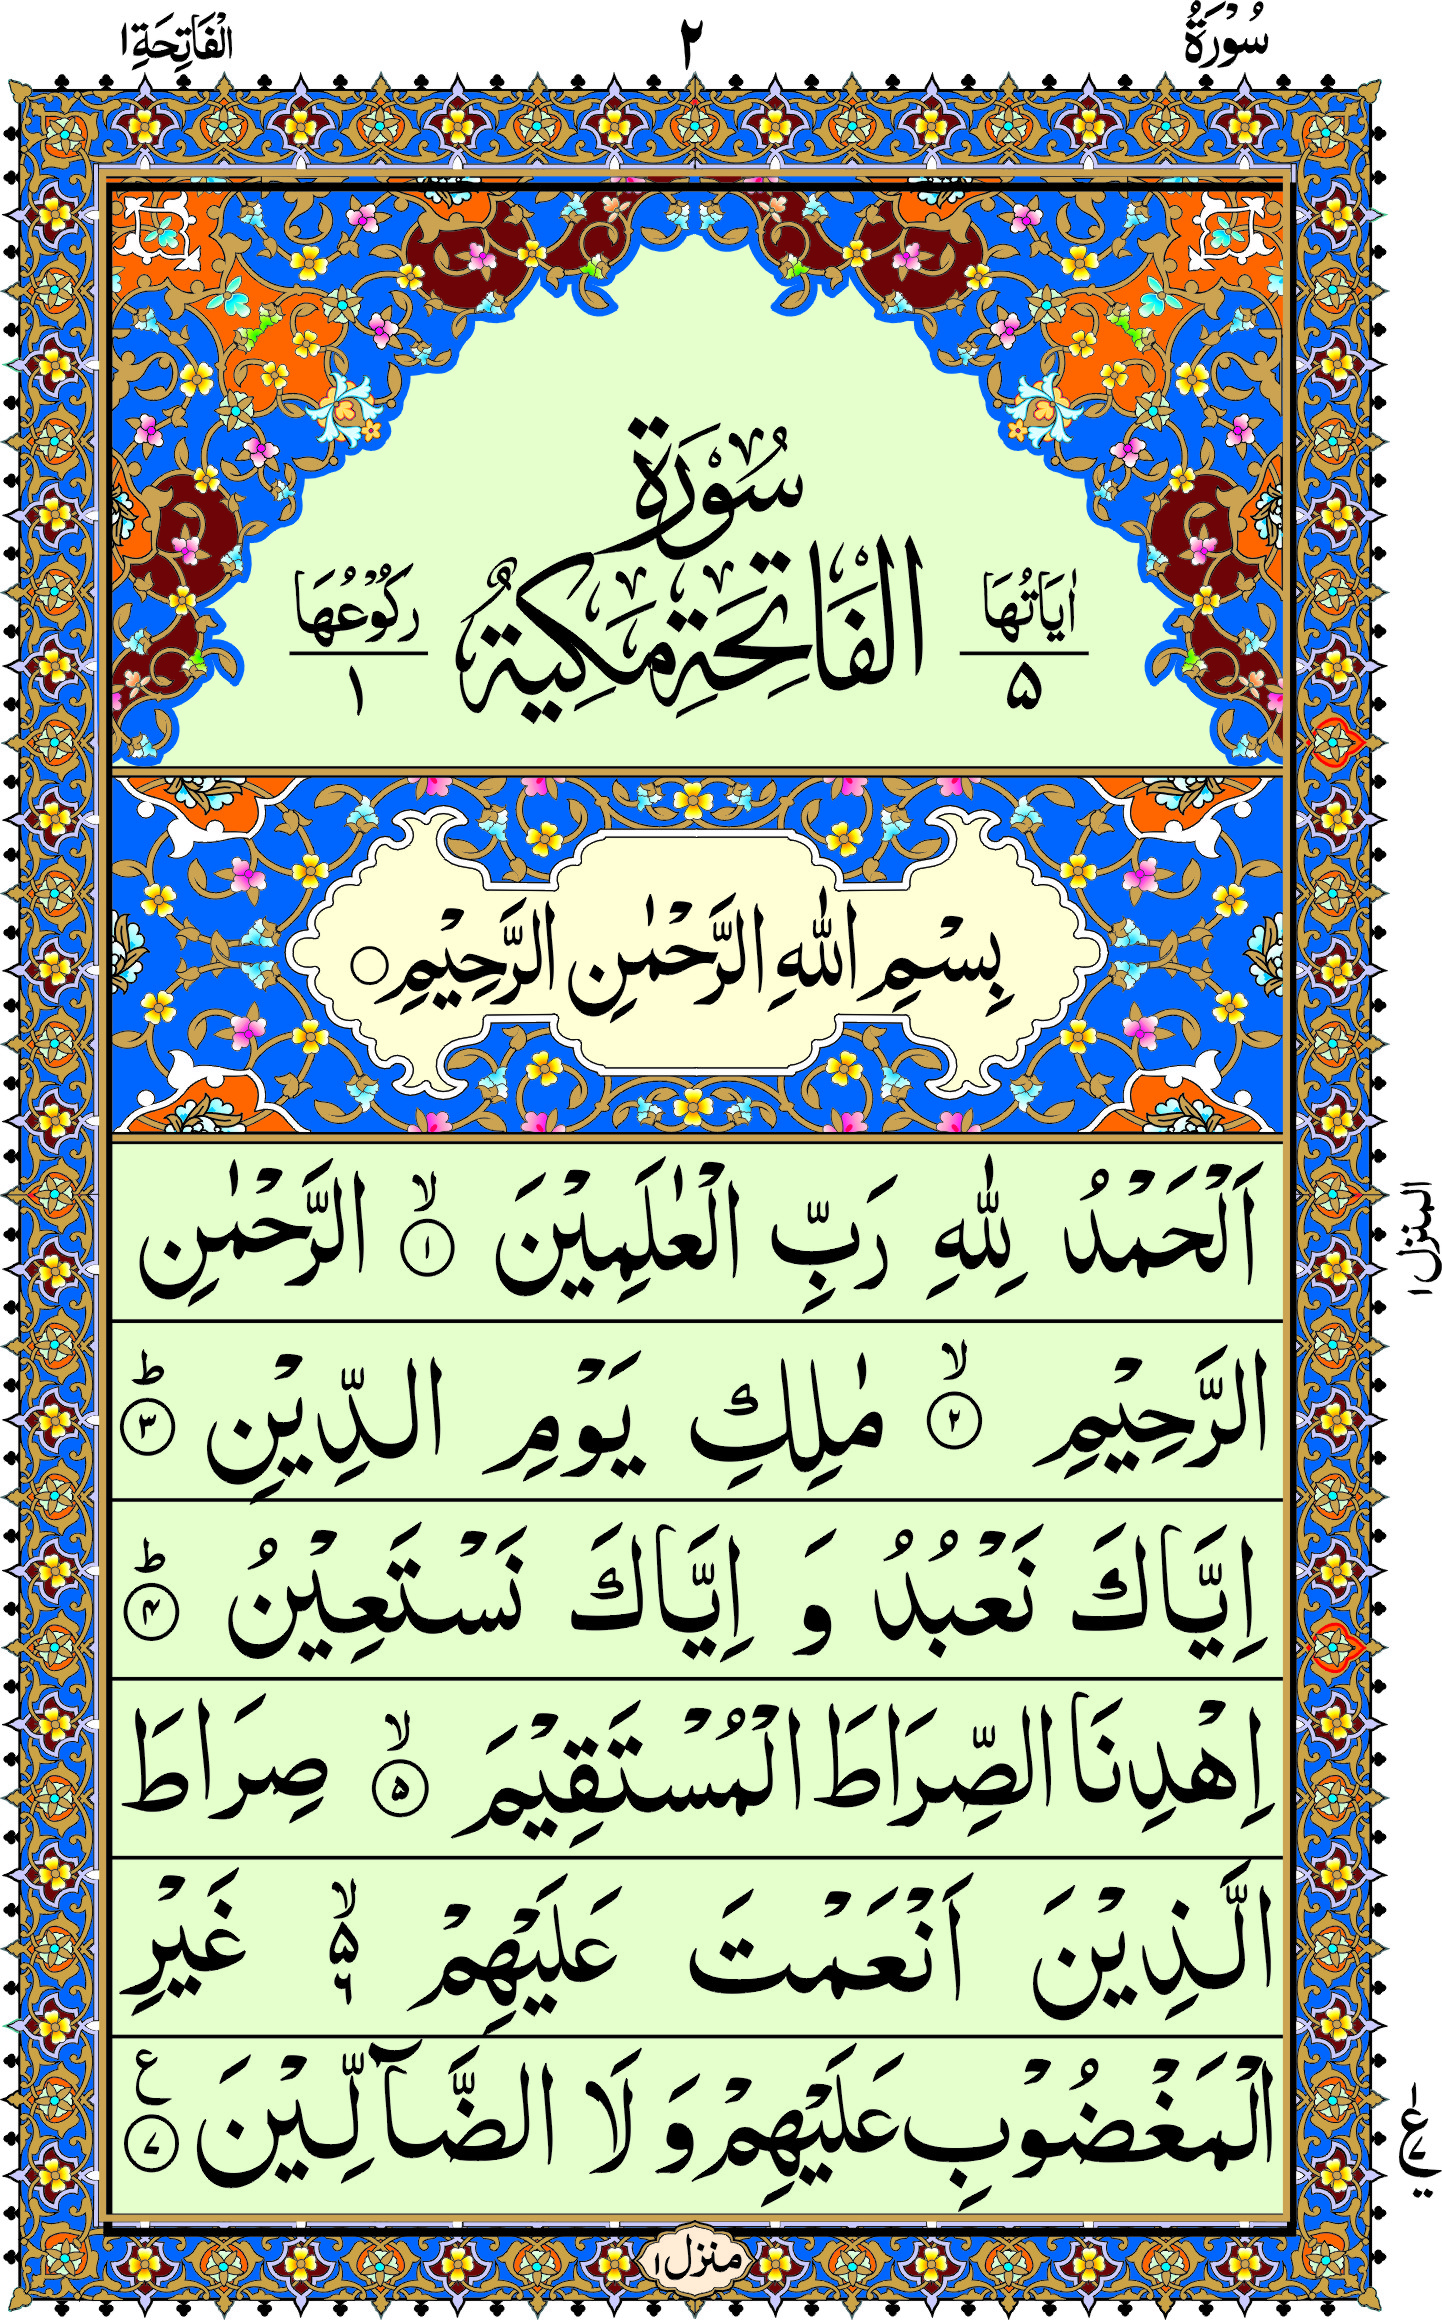 سُوْرَةُ ٢ الْفَاتِحَةِ ١
سُوْرَةُ
اٰيَاتُهَا ۵ الْفَاتِحَةِ مَكِيَةٌ رَكُوْعُهَا ١
بِسْمِ اللّٰهِ الرَّحْمٰنِ الرَّحِيْمِ ○
اَلْحَمْدُ لِلّٰهِ رَبِّ الْعٰلَمِيْنَ ۙ﴿١﴾ الرَّحْمٰنِ
الرَّحِيْمِ ۙ﴿٢﴾ مٰلِكِ يَوْمِ الدِّيْنِ ؕ﴿٣﴾
اِيَّاكَ نَعْبُدُ وَ اِيَّاكَ نَسْتَعِيْنُ ؕ﴿۴﴾
اِهْدِنَا الصِّرَاطَ الْمُسْتَقِيْمَ ۙ﴿۵﴾ صِرَاطَ
الَّذِيْنَ اَنْعَمْتَ عَلَيْهِمْ ۙ۵ ۶ غَيْرِ
الْمَغْضُوْبِ عَلَيْهِمْ وَ لَا الضَّآلِّيْنَ ع﴿٧﴾
المنزل ١
منزل ١